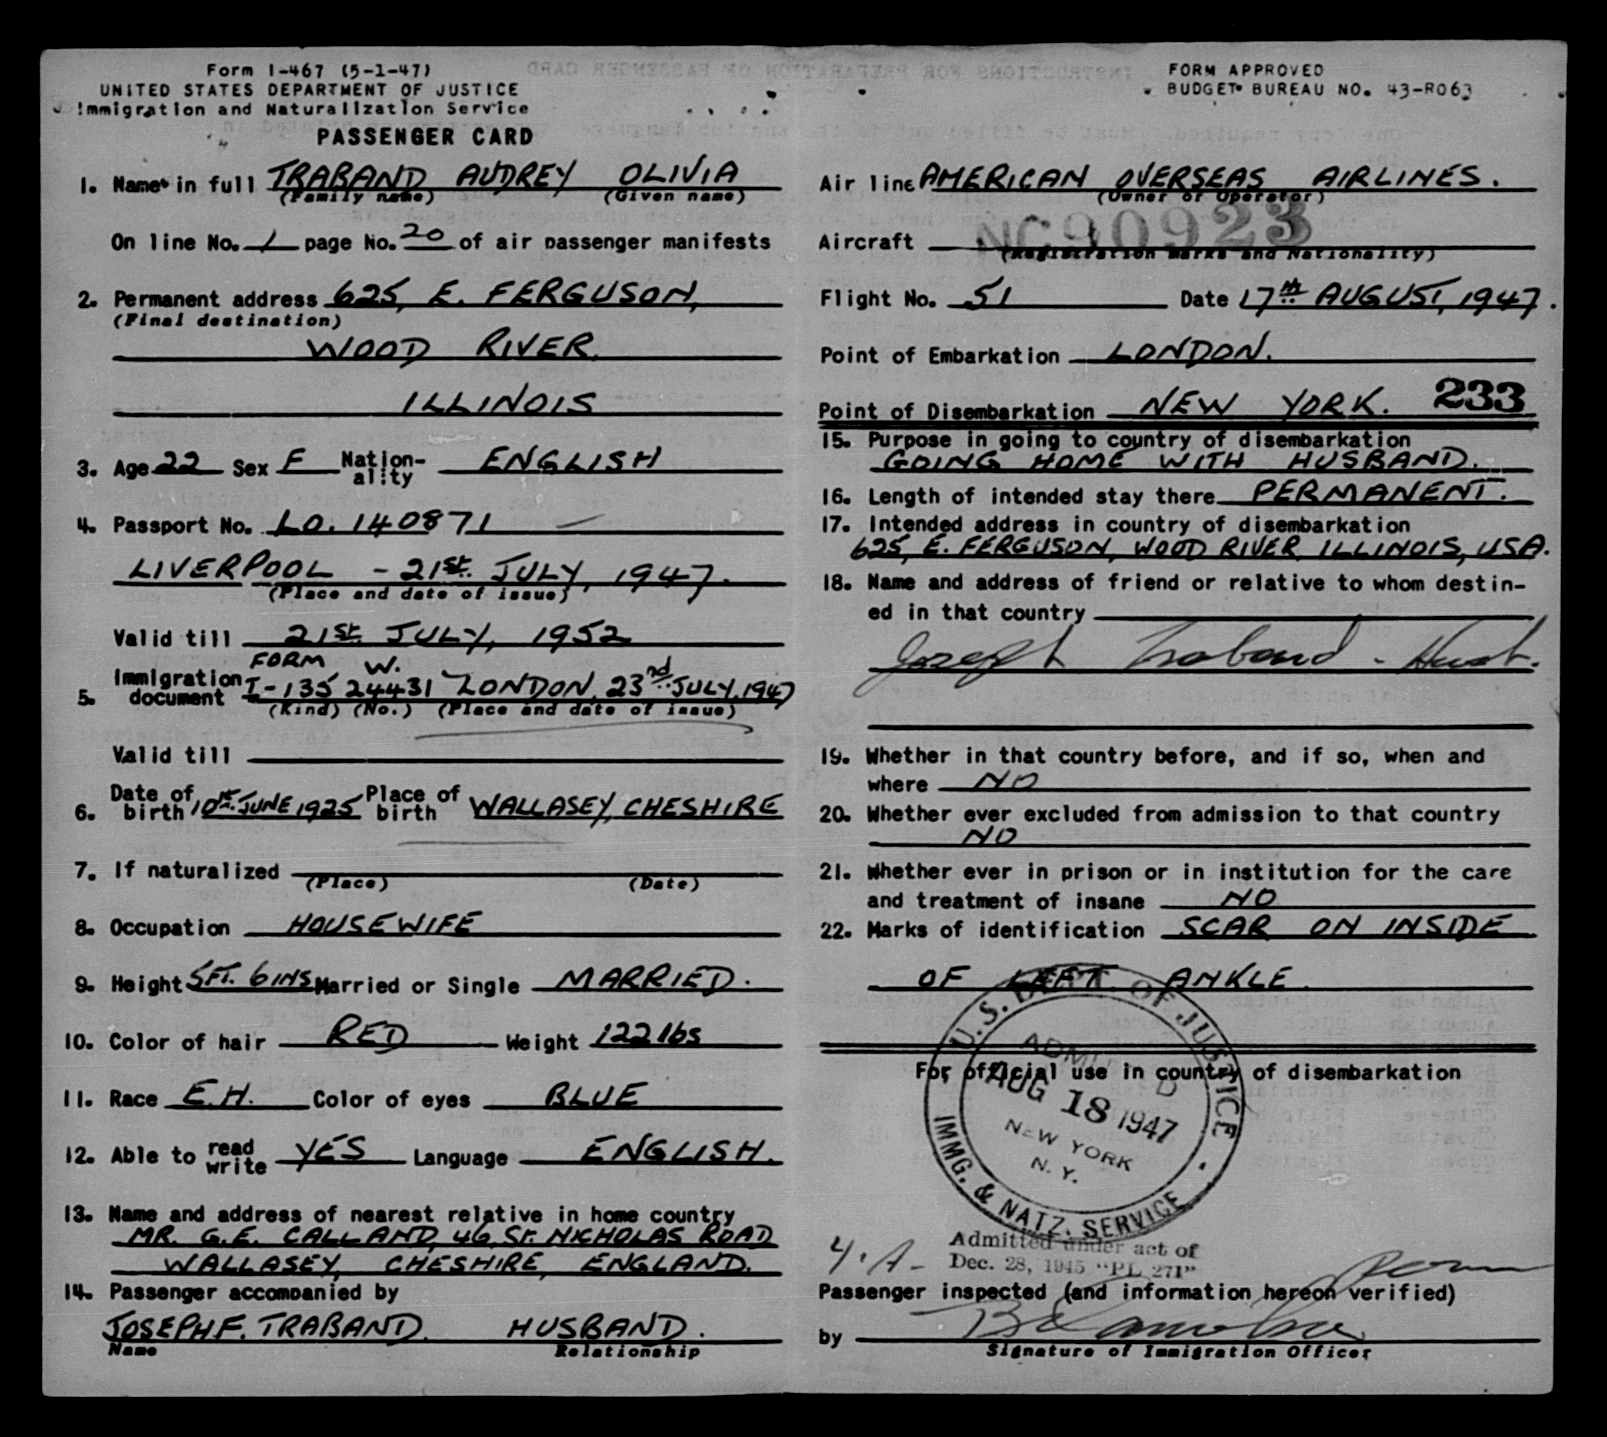 Form I-467 (5-1-47)
UNITED STATES DEPARTMENT OF JUSTICE
Immigration and Naturalization Service
PASSENGER CARD
1. Name in full TRABAND AUDREY OLIVIA
(Family name) (Given name)
On line No. 1 page No. 20 of air passenger manifests
2. Permanent address 625, E. FERGUSON,
(Final destination)
WOOD RIVER.
ILLINOIS
3. Age 22 Sex F Nation-ality ENGLISH
4. Passport No. LO. 140871
LIVERPOOL - 21st. JULY, 1947.
(Place and date of issue)
Valid till 21st. JULY, 1952
FORM W.
5. Immigration document I-135 24431 LONDON, 23nd JULY, 1947
(Kind) (No.) (Place and date of issue)
Valid till
6. Date of birth 10th. JUNE 1925 Place of birth WALLASEY, CHESHIRE
7. If naturalized
(Place) (Date)
8. Occupation HOUSEWIFE
9. Height 5FT. 6INS Married or Single MARRIED.
10. Color of hair RED Weight 122 lbs
11. Race E.H. Color of eyes BLUE
12. Able to read write YES Language ENGLISH.
13. Name and address of nearest relative in home country
MR. G.E. CALLAND, 46, ST. NICHOLAS ROAD
WALLASEY, CHESHIRE, ENGLAND.
14. Passenger accompanied by
JOSEPH F. TRABAND. HUSBAND.
Name Relationship
FORM APPROVED
BUDGET BUREAU NO. 43-R063
Air line AMERICAN OVERSEAS AIRLINES.
(Owner or Operator)
Aircraft NC90923
(Registration marks and Nationality)
Flight No. 51 Date 17th AUGUST, 1947.
Point of Embarkation LONDON.
Point of Disembarkation NEW YORK. 233
15. Purpose in going to country of disembarkation
GOING HOME WITH HUSBAND.
16. Length of intended stay there PERMANENT.
17. Intended address in country of disembarkation
625, E. FERGUSON, WOOD RIVER, ILLINOIS, USA.
18. Name and address of friend or relative to whom destin-
ed in that country
Joseph Traband - Husb.
19. Whether in that country before, and if so, when and
where NO
20. Whether ever excluded from admission to that country
NO
21. Whether ever in prison or in institution for the care
and treatment of insane NO
22. Marks of identification SCAR ON INSIDE
OF LEFT ANKLE.
For official use in country of disembarkation
U.S. DEPT. OF JUSTICE
ADMITTED
AUG 18 1947
NEW YORK
N.Y.
IMMG. & NATZ. SERVICE
Admitted under act of
Dec. 28, 1945 "PL 271"
Passenger inspected (and information hereon verified)
by
Signature of Immigration Officer